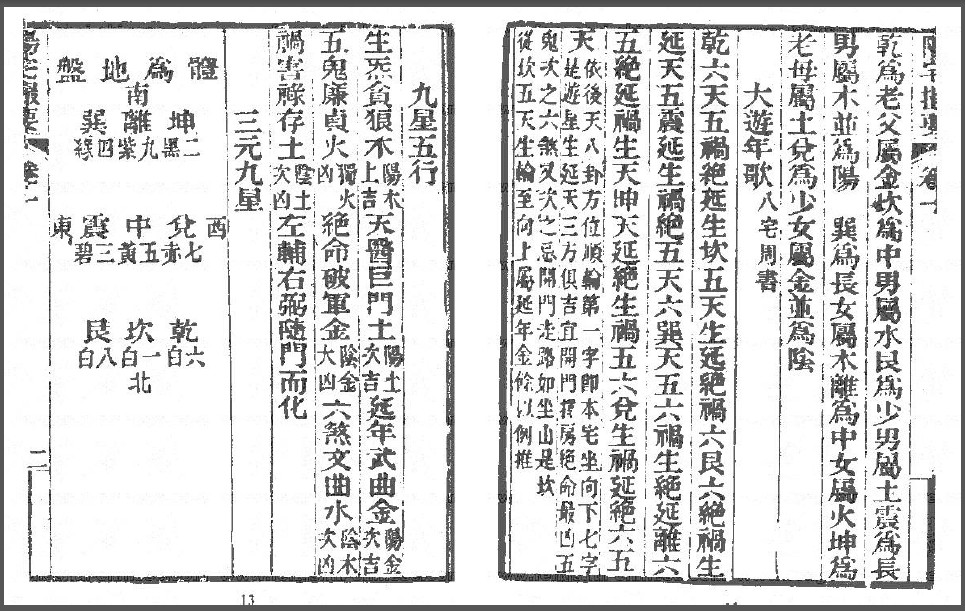 乾為老父屬金坎為中男屬水艮為少男屬土震為長
男屬木並為陽　巽為長女屬木離為中女屬火坤為
老母屬土兌為少女屬金並為陰
大遊年歌八宅周書
乾六天五禍絕延生坎五天生延絕禍六艮六絕禍生
延天五震延生禍絕五天六巽天五六禍生絕延離六
五絕延禍生天坤天延絕生禍五六兌生禍延絕六五
天依後天八卦方位順輪第一字即本宅坐向下七字
是遊星生延天三方俱吉宜開門擇房絕命最凶五
鬼次之六煞又次之忌開門走路如坐山是坎
從坎五天生輪至向上屬延年金餘以例推
九星五行
生炁貪狼木陽木上吉天醫巨門土陽土次吉延年武曲金陽金次吉
五鬼廉貞火獨火凶絕命破軍金陰金大凶六煞文曲水陰水次凶
禍害祿存土陰土次凶左輔右弼隨門而化
三元九星
體為地盤
南
坤離巽
二黑九紫四綠
西兌中震東
七赤五黃三碧
乾坎艮
六白一白八白
北
二
13